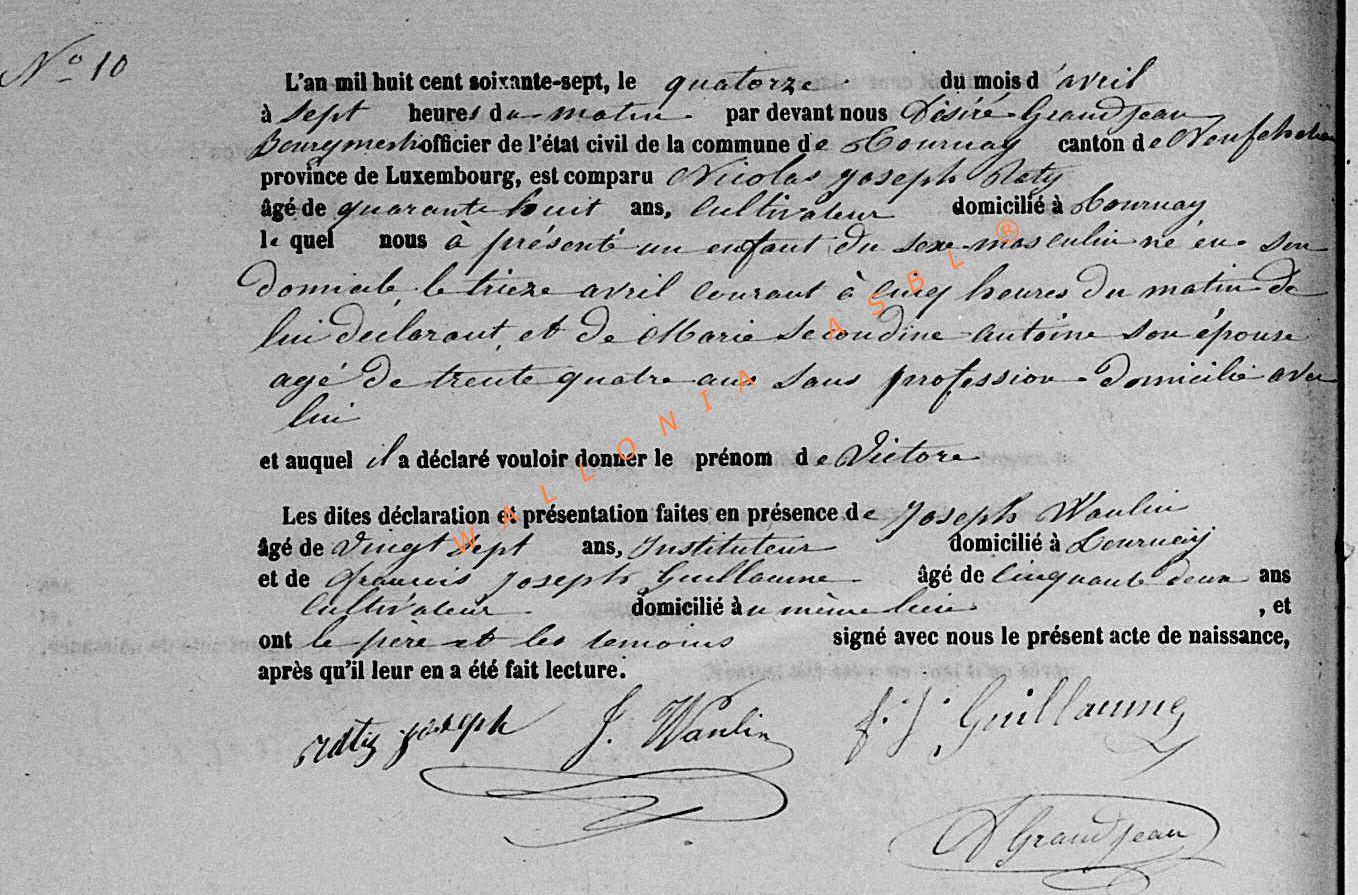 No 10
L'an mil huit cent soixante-sept, le quatorze du mois d'avril
à sept heures du matin par devant nous Désiré Grandjean
Bourgmestre officier de l'état civil de la commune de Tournay canton de Neufchateau
province de Luxembourg, est comparu Nicolas Joseph Raty
âgé de quarante huit ans, Cultivateur domicilié à Tournay
le quel nous à présenté un enfant du sexe masculin né en son
Domicile, le trieze avril courant à cinq heures du matin de
lui declarant, et de Marie Secondine Antoine son épouse
agé de trente quatre ans sans profession domicilié avec
lui
et auquel il a déclaré vouloir donner le prénom de Victore
Les dites déclaration et présentation faites en présence de Joseph Waulin
âgé de vingt sept ans, Instituteur domicilié à Tournay
et de François Joseph Guillaume âgé de cinquante deux ans
Cultivateur domicilié àu même lieu , et
ont le père et les temoins signé avec nous le présent acte de naissance,
après qu'il leur en a été fait lecture.
Raty joseph J. Waulin f. J. Guillaume
D Grandjean
WALLONIA ASBL ®